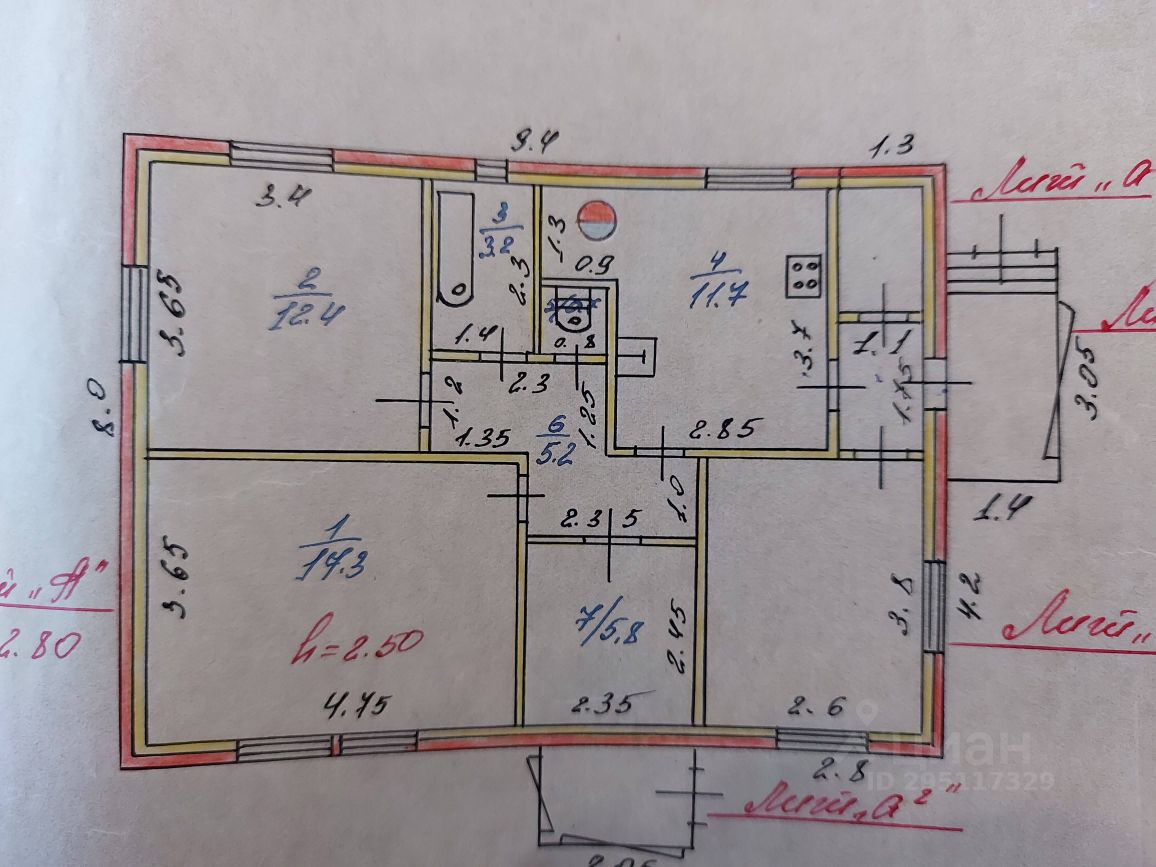 9.4
1.3
3.4
3
3.2
1.3
0.9
2.3
4
11.7
2
12.4
3.65
1.4
0.8
3.7
1.1
1.75
3.05
8.0
1.2
2.3
1.35
6
5.2
1.25
2.85
1.0
2.3 5
1.4
1
17.3
3.65
"А"
2.80
h=2.50
7/5,8
2.45
3.8
4.2
4.75
2.35
2.6
2.8
циан
ID 295117329
Лит „а²"